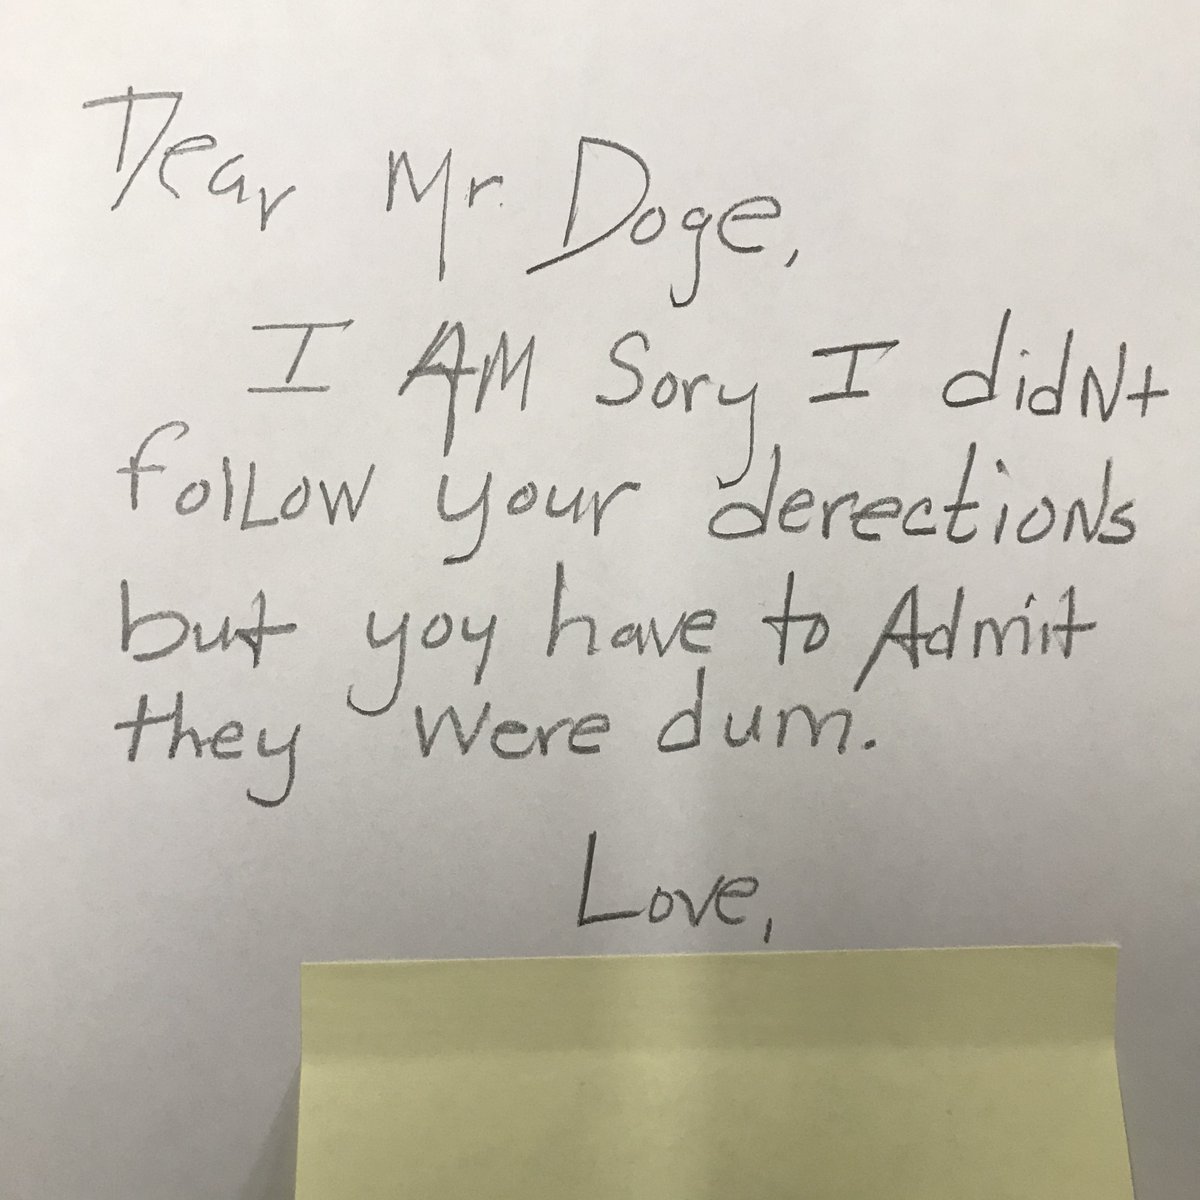 Dear Mr. Doge,
I AM Sory I didNt
folLow your derectioNs
but yoy have to Admit
they were dum.
Love,